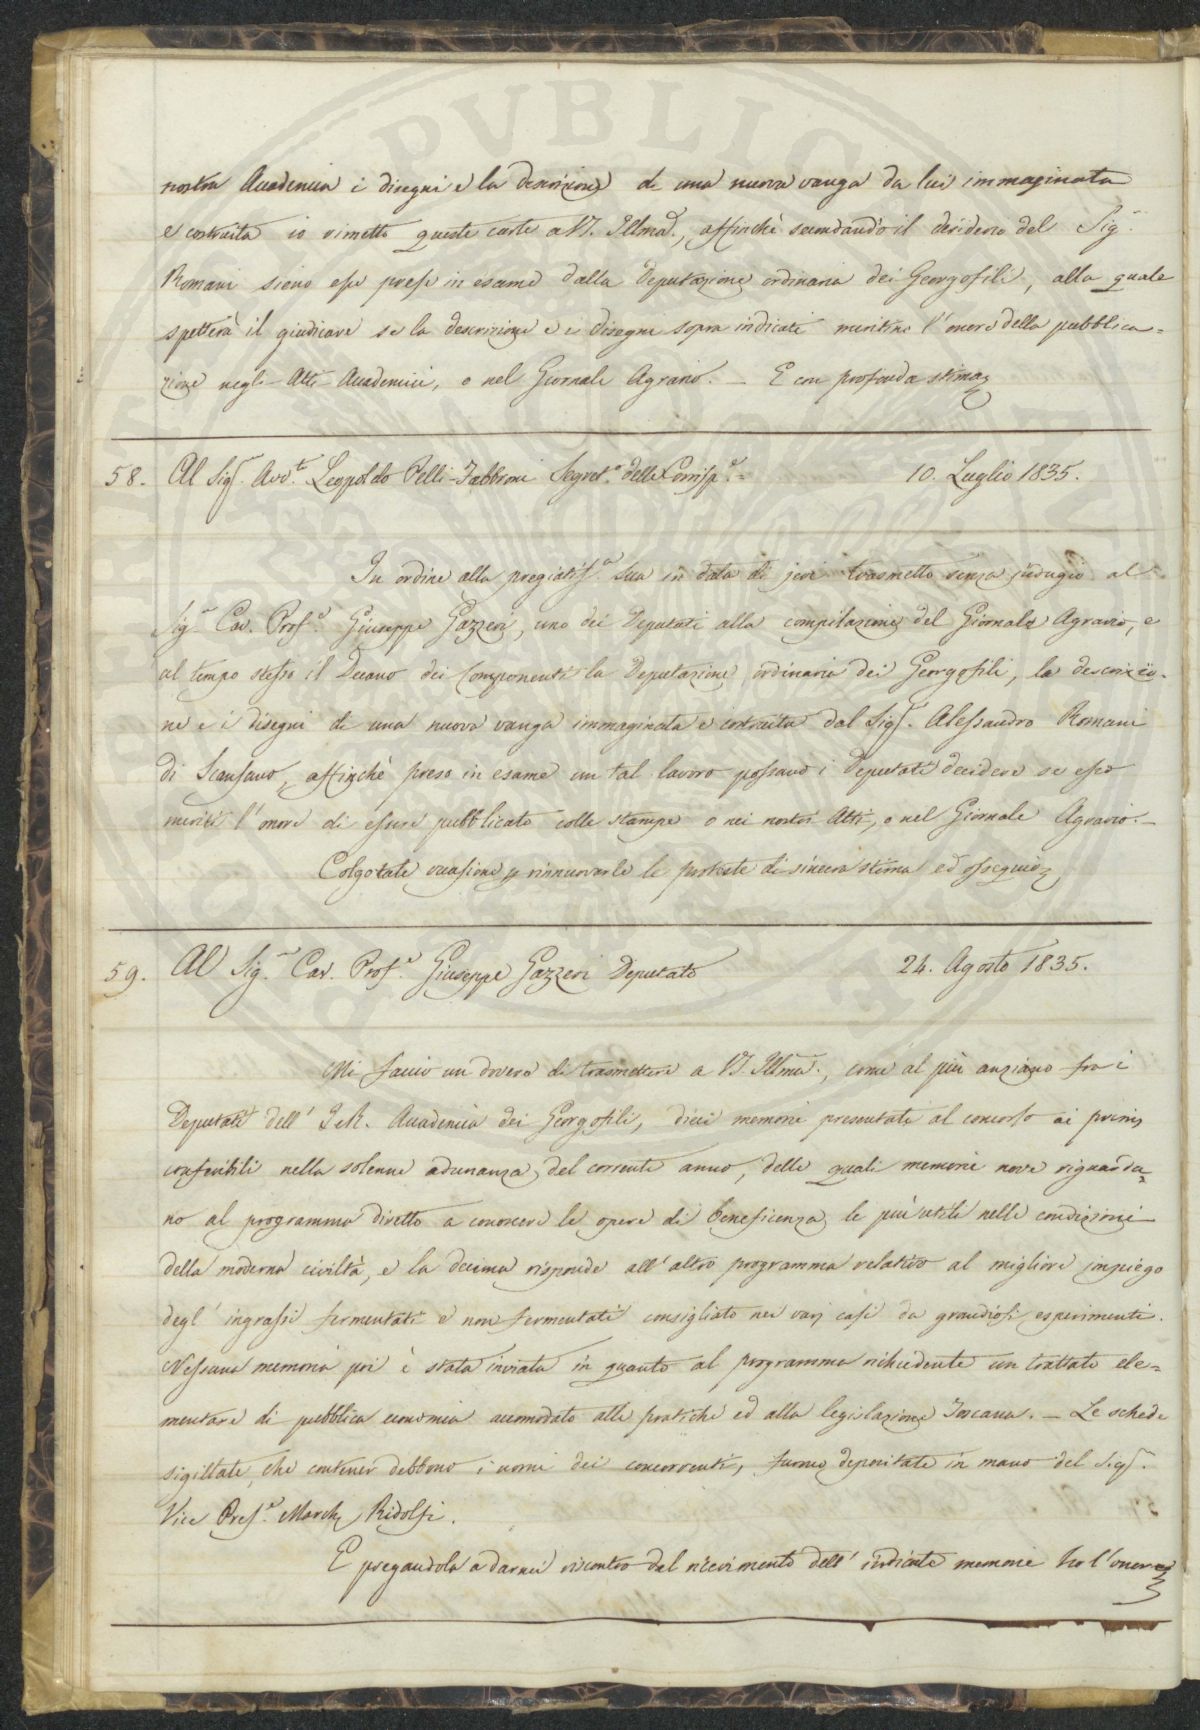 nostra Accademia i disegni e la descrizione di una nuova vanga da lui immaginata
e costruita io rimetto queste carte a VS. Illma., affinchè secondando il desiderio del Sigr.
Romani sieno esse prese in esame dalla Deputazione ordinaria dei Georgofili, alla quale
spetterà il giudicare se la descrizione e i disegni sopra indicati meritino l'onore della pubblica=
zione negli Atti Accademici, o nel Giornale Agrario. — E con profonda stima
58. Al Sigr. Avvto. Leopoldo Pelli-Fabbroni Segreto. delle Corrispe. = 10. Luglio 1835.
In ordine alla pregiatissa. Sua in data di jeri trasmetto senza indugio al
Sigr. Cav. Profe. Giuseppe Gazzeri, uno dei Deputati alla compilazione del Giornale Agrario, e
al tempo stesso il Decano dei Componenti la Deputazione ordinaria dei Georgofili, la descrizio=
ne e i disegni di una nuova vanga immaginata e costruita dal Sigr. Alessandro Romani
di Scansano, affinchè preso in esame un tal lavoro possano i Deputati decidere se esso
meriti l'onore di essere pubblicato colle stampe o nei nostri Atti, o nel Giornale Agrario. —
Colgo tale occasione p rinnuovarle le proteste di sincera stima ed ossequio
59. Al Sigr. Cav. Profe. Giuseppe Gazzeri Deputato 24. Agosto 1835.
Mi faccio un dovere di trasmettere a VS. Illma., come al più anziano fra i
Deputati dell' I e R. Accademia dei Georgofili, dieci memorie presentate al concorso ai premj
conferibili nella solenne adunanza del corrente anno, delle quali memorie nove riguarda=
no al programma diretto a conoscere le opere di beneficenza le più utili nelle condizioni
della moderna civiltà, e la decima risponde all' altro programma relativo al migliore impiego
degl' ingrassi fermentati e non fermentati consigliato nei varj casi da grandiosi esperimenti.
Nessuna memoria poi è stata inviata in quanto al programma richiedente un trattato ele=
mentare di pubblica economia accomodato alle pratiche ed alla legislazione Toscana. — Le schede
sigillate, che contener debbono i nomi dei concorrenti, furono depositate in mano del Sigr.
Vice Prese. March. Ridolfi.
E pregandola a darmi riscontro del ricevimento dell' indicate memorie ho l'onore